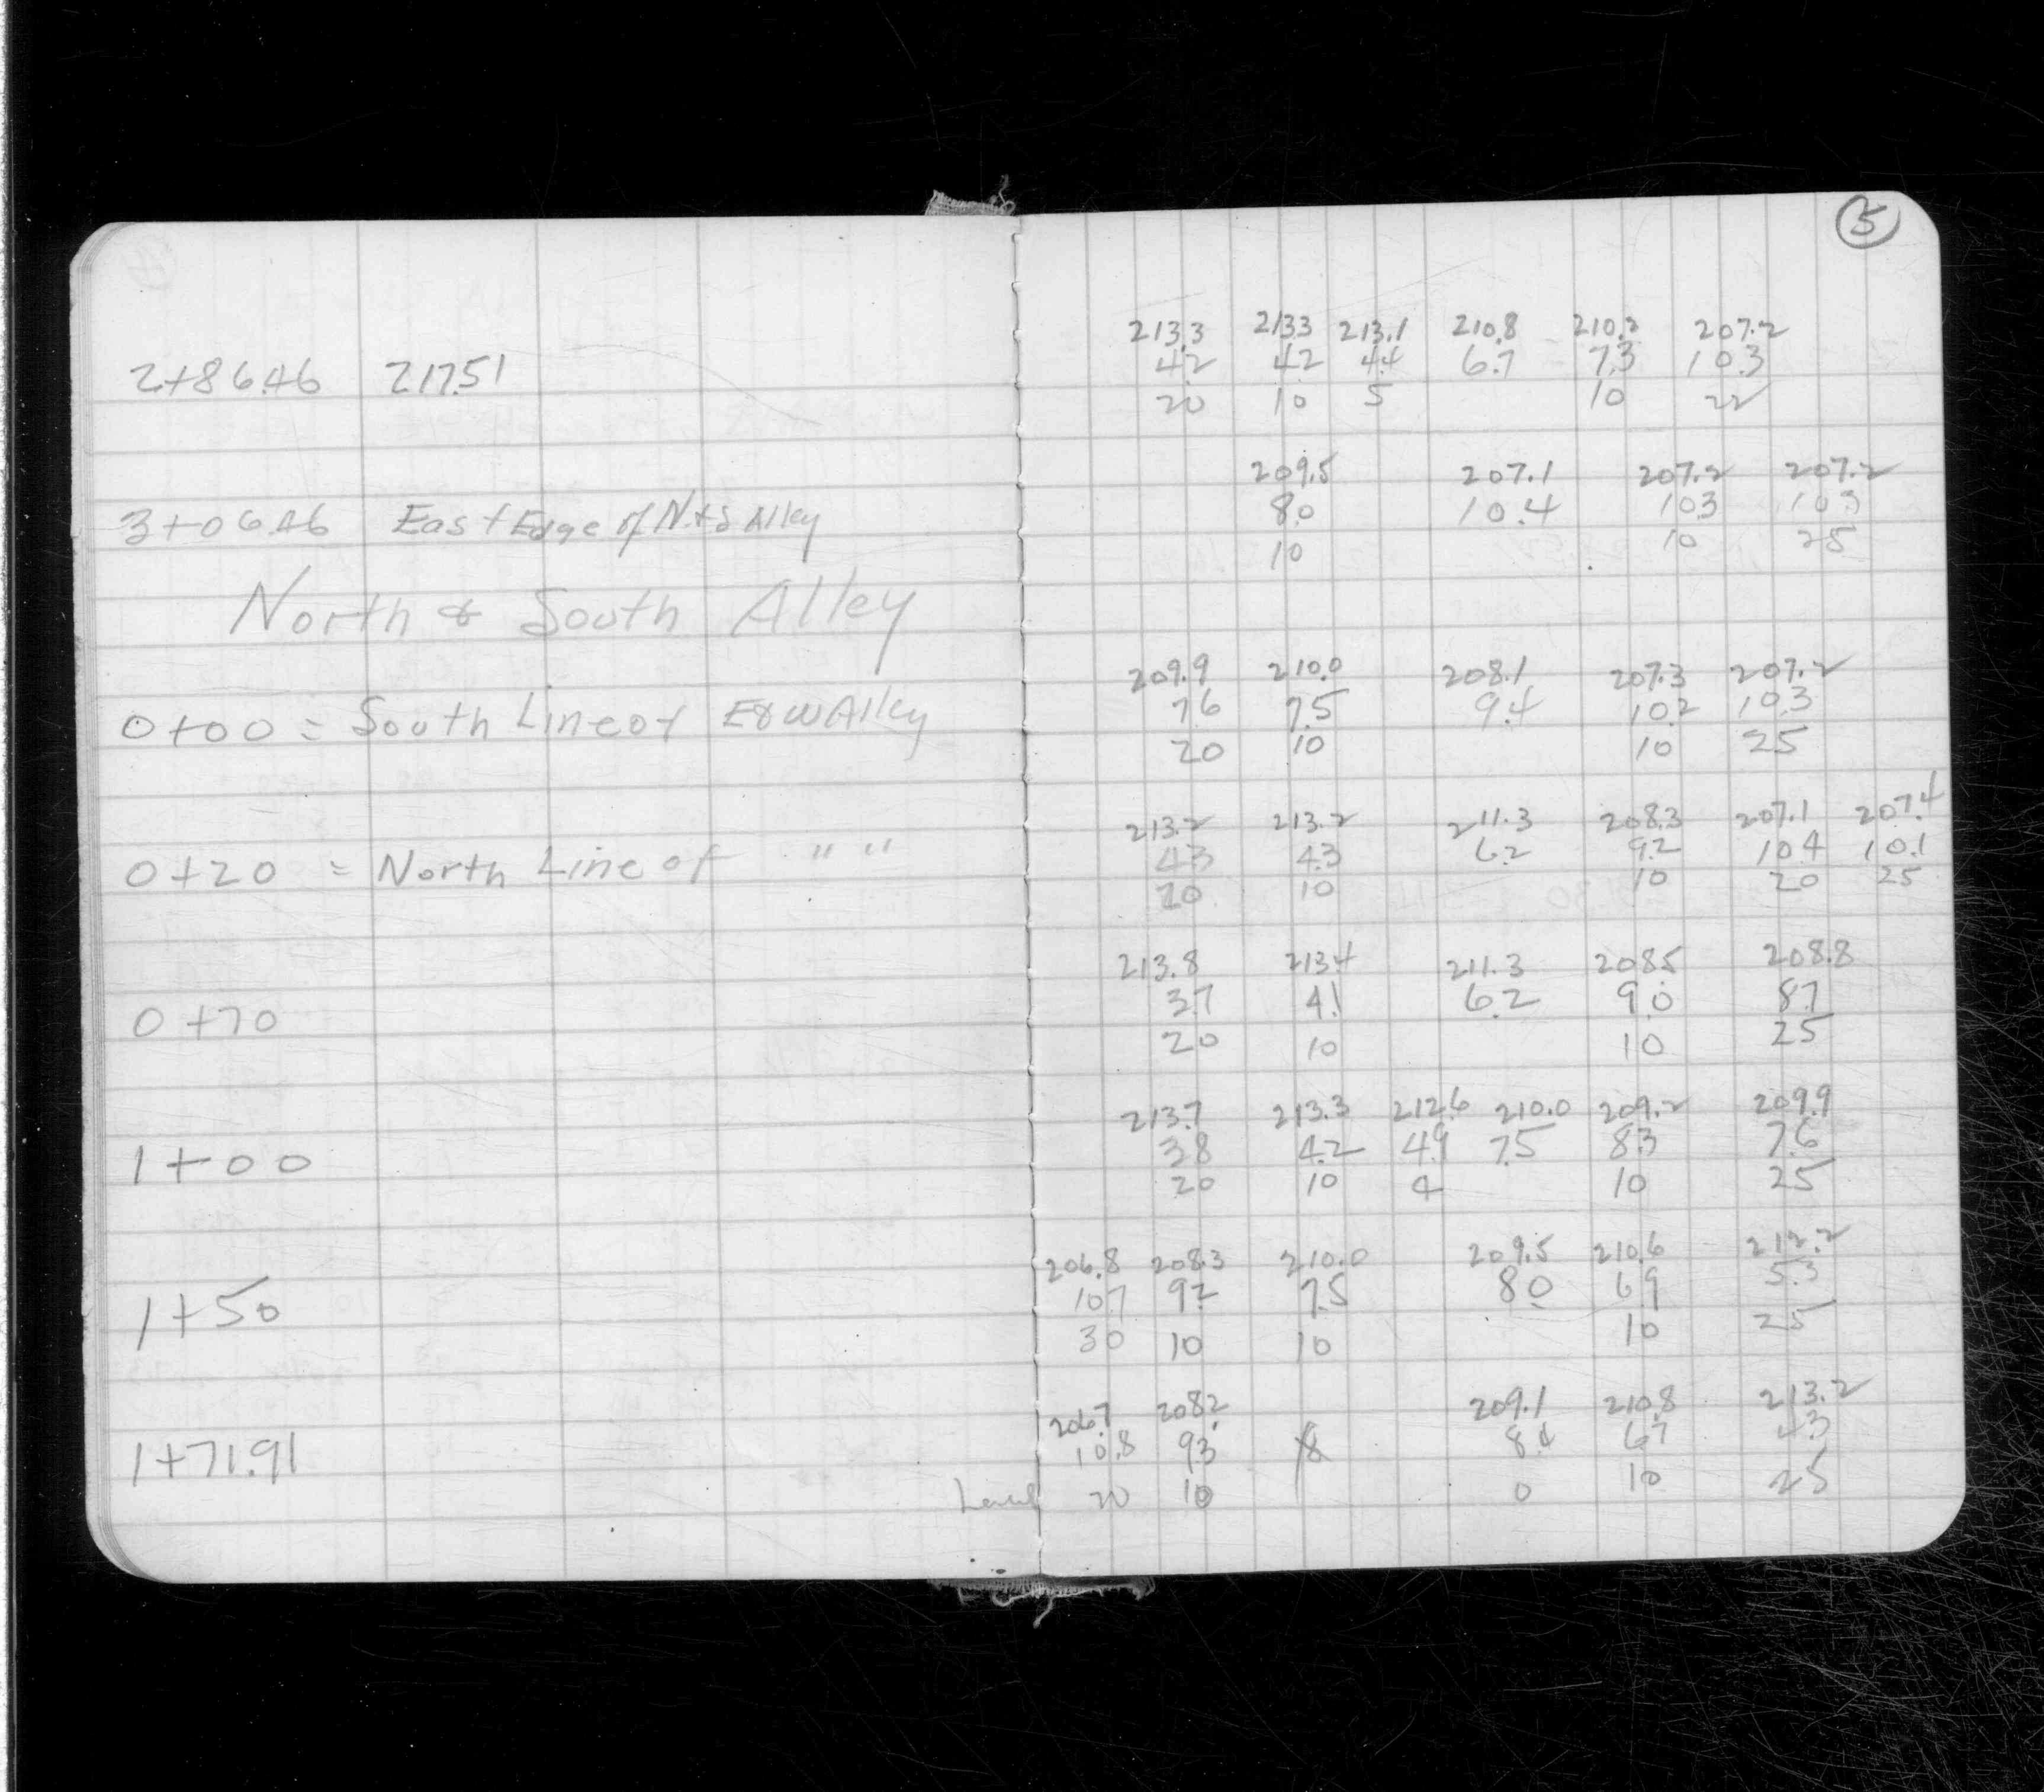 5
213.3 213.3 213.1 210.8 210.2 207.2
2+86.46 217.51 4.2 4.2 4.4 6.7 7.3 10.3
20 10 5 10 22
209.5 207.1 207.2 207.2
3+06.46 East Edge of N.+S Alley 8.0 10.4 10.3 10.3
10 10 25
North & South Alley
209.9 210.0 208.1 207.3 207.2
0+00 = South Line of E&W Alley 7.6 7.5 9.4 10.2 10.3
20 10 10 25
213.2 213.2 211.3 208.3 207.1 207.4
0+20 = North Line of " " 4.3 4.3 6.2 9.2 10.4 10.1
20 10 10 20 25
213.8 213.4 211.3 208.5 208.8
0+70 3.7 4.1 6.2 9.0 8.7
20 10 10 25
213.7 213.3 212.6 210.0 209.2 209.9
1+00 3.8 4.2 4.9 7.5 8.3 7.6
20 10 4 10 25
206.8 208.3 210.0 209.5 210.6 212.2
1+50 10.7 9.2 7.5 8.0 6.9 5.3
30 10 10 10 25
206.7 208.2 209.1 210.8 213.2
1+71.91 10.8 9.3 8.4 6.7 4.3
20 10 0 10 25